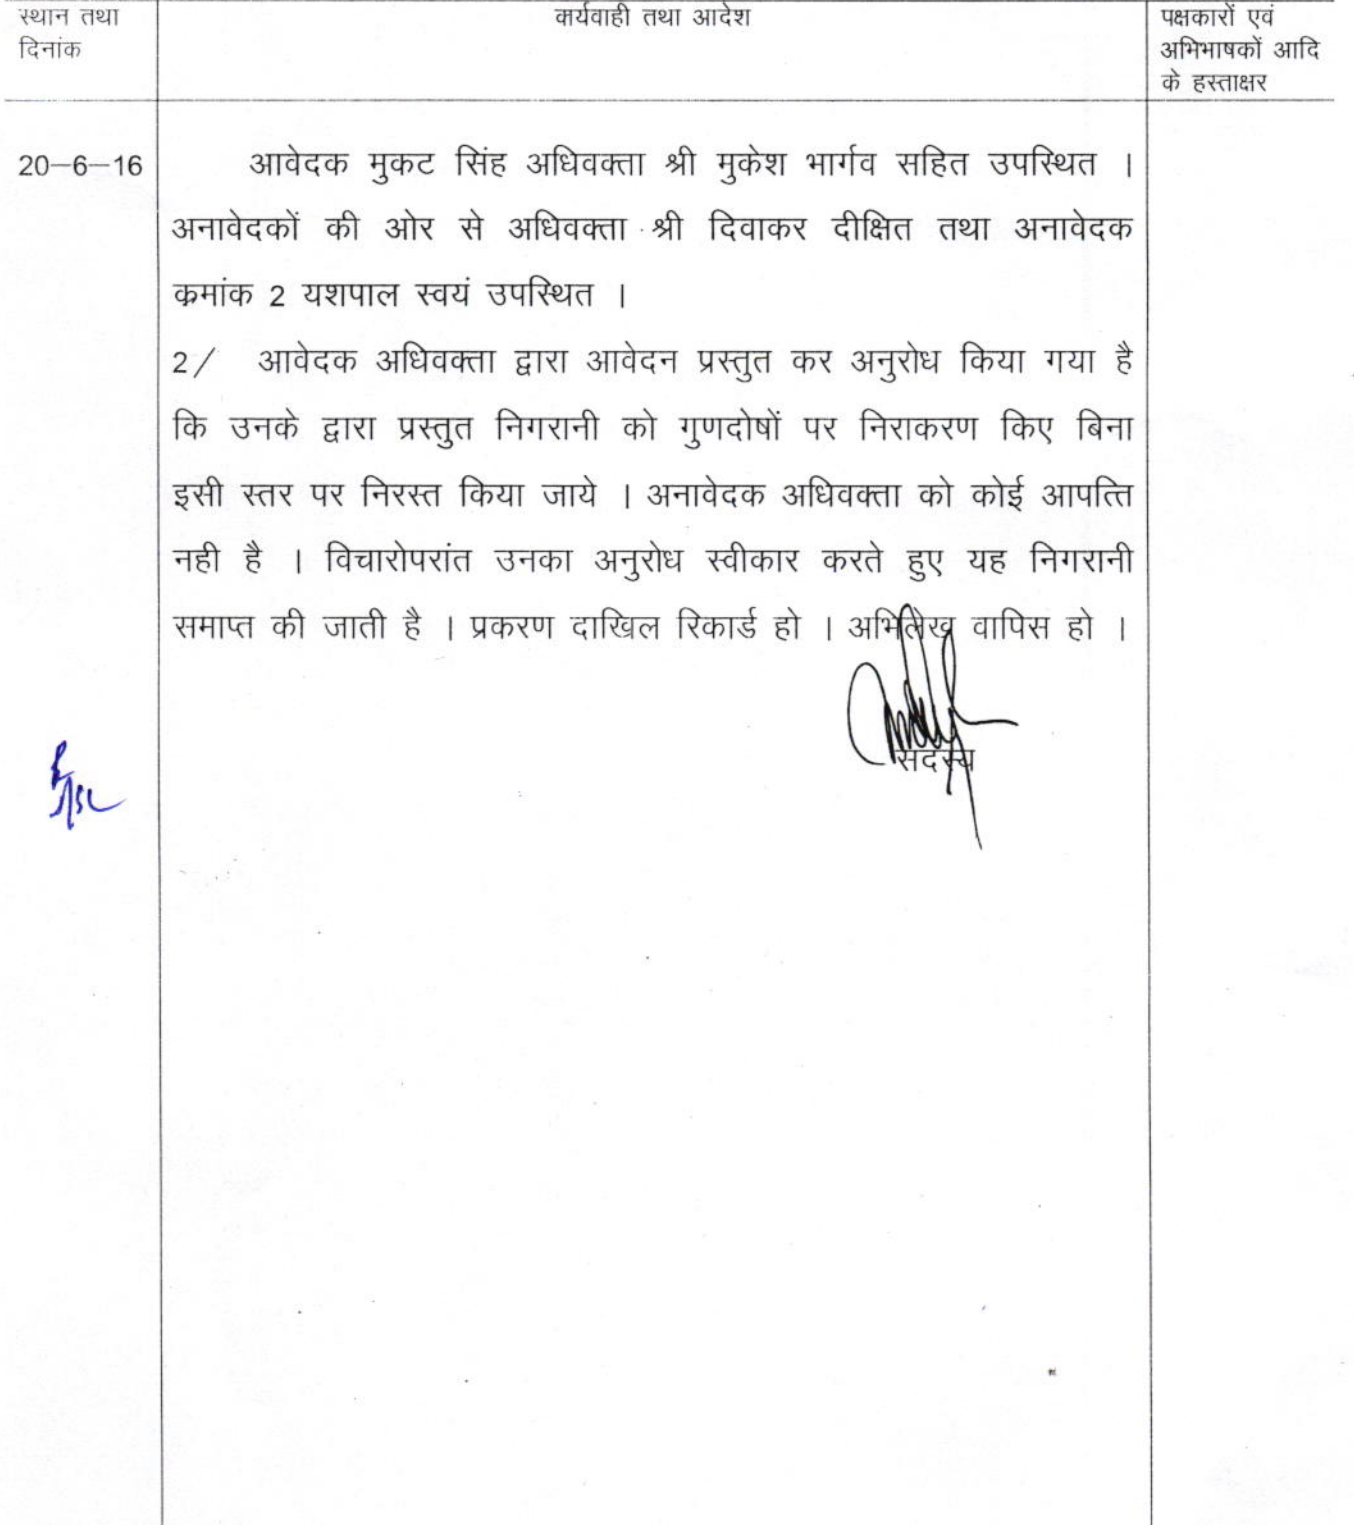 स्थान तथा
दिनांक
कार्यवाही तथा आदेश
पक्षकारों एवं
अभिभाषकों आदि
के हस्ताक्षर
20–6–16
आवेदक मुकट सिंह अधिवक्ता श्री मुकेश भार्गव सहित उपस्थित ।
अनावेदकों की ओर से अधिवक्ता श्री दिवाकर दीक्षित तथा अनावेदक
क्रमांक 2 यशपाल स्वयं उपस्थित ।
2/ आवेदक अधिवक्ता द्वारा आवेदन प्रस्तुत कर अनुरोध किया गया है
कि उनके द्वारा प्रस्तुत निगरानी को गुणदोषों पर निराकरण किए बिना
इसी स्तर पर निरस्त किया जाये । अनावेदक अधिवक्ता को कोई आपत्ति
नही है । विचारोपरांत उनका अनुरोध स्वीकार करते हुए यह निगरानी
समाप्त की जाती है । प्रकरण दाखिल रिकार्ड हो । अभिलेख वापिस हो ।
सदस्य